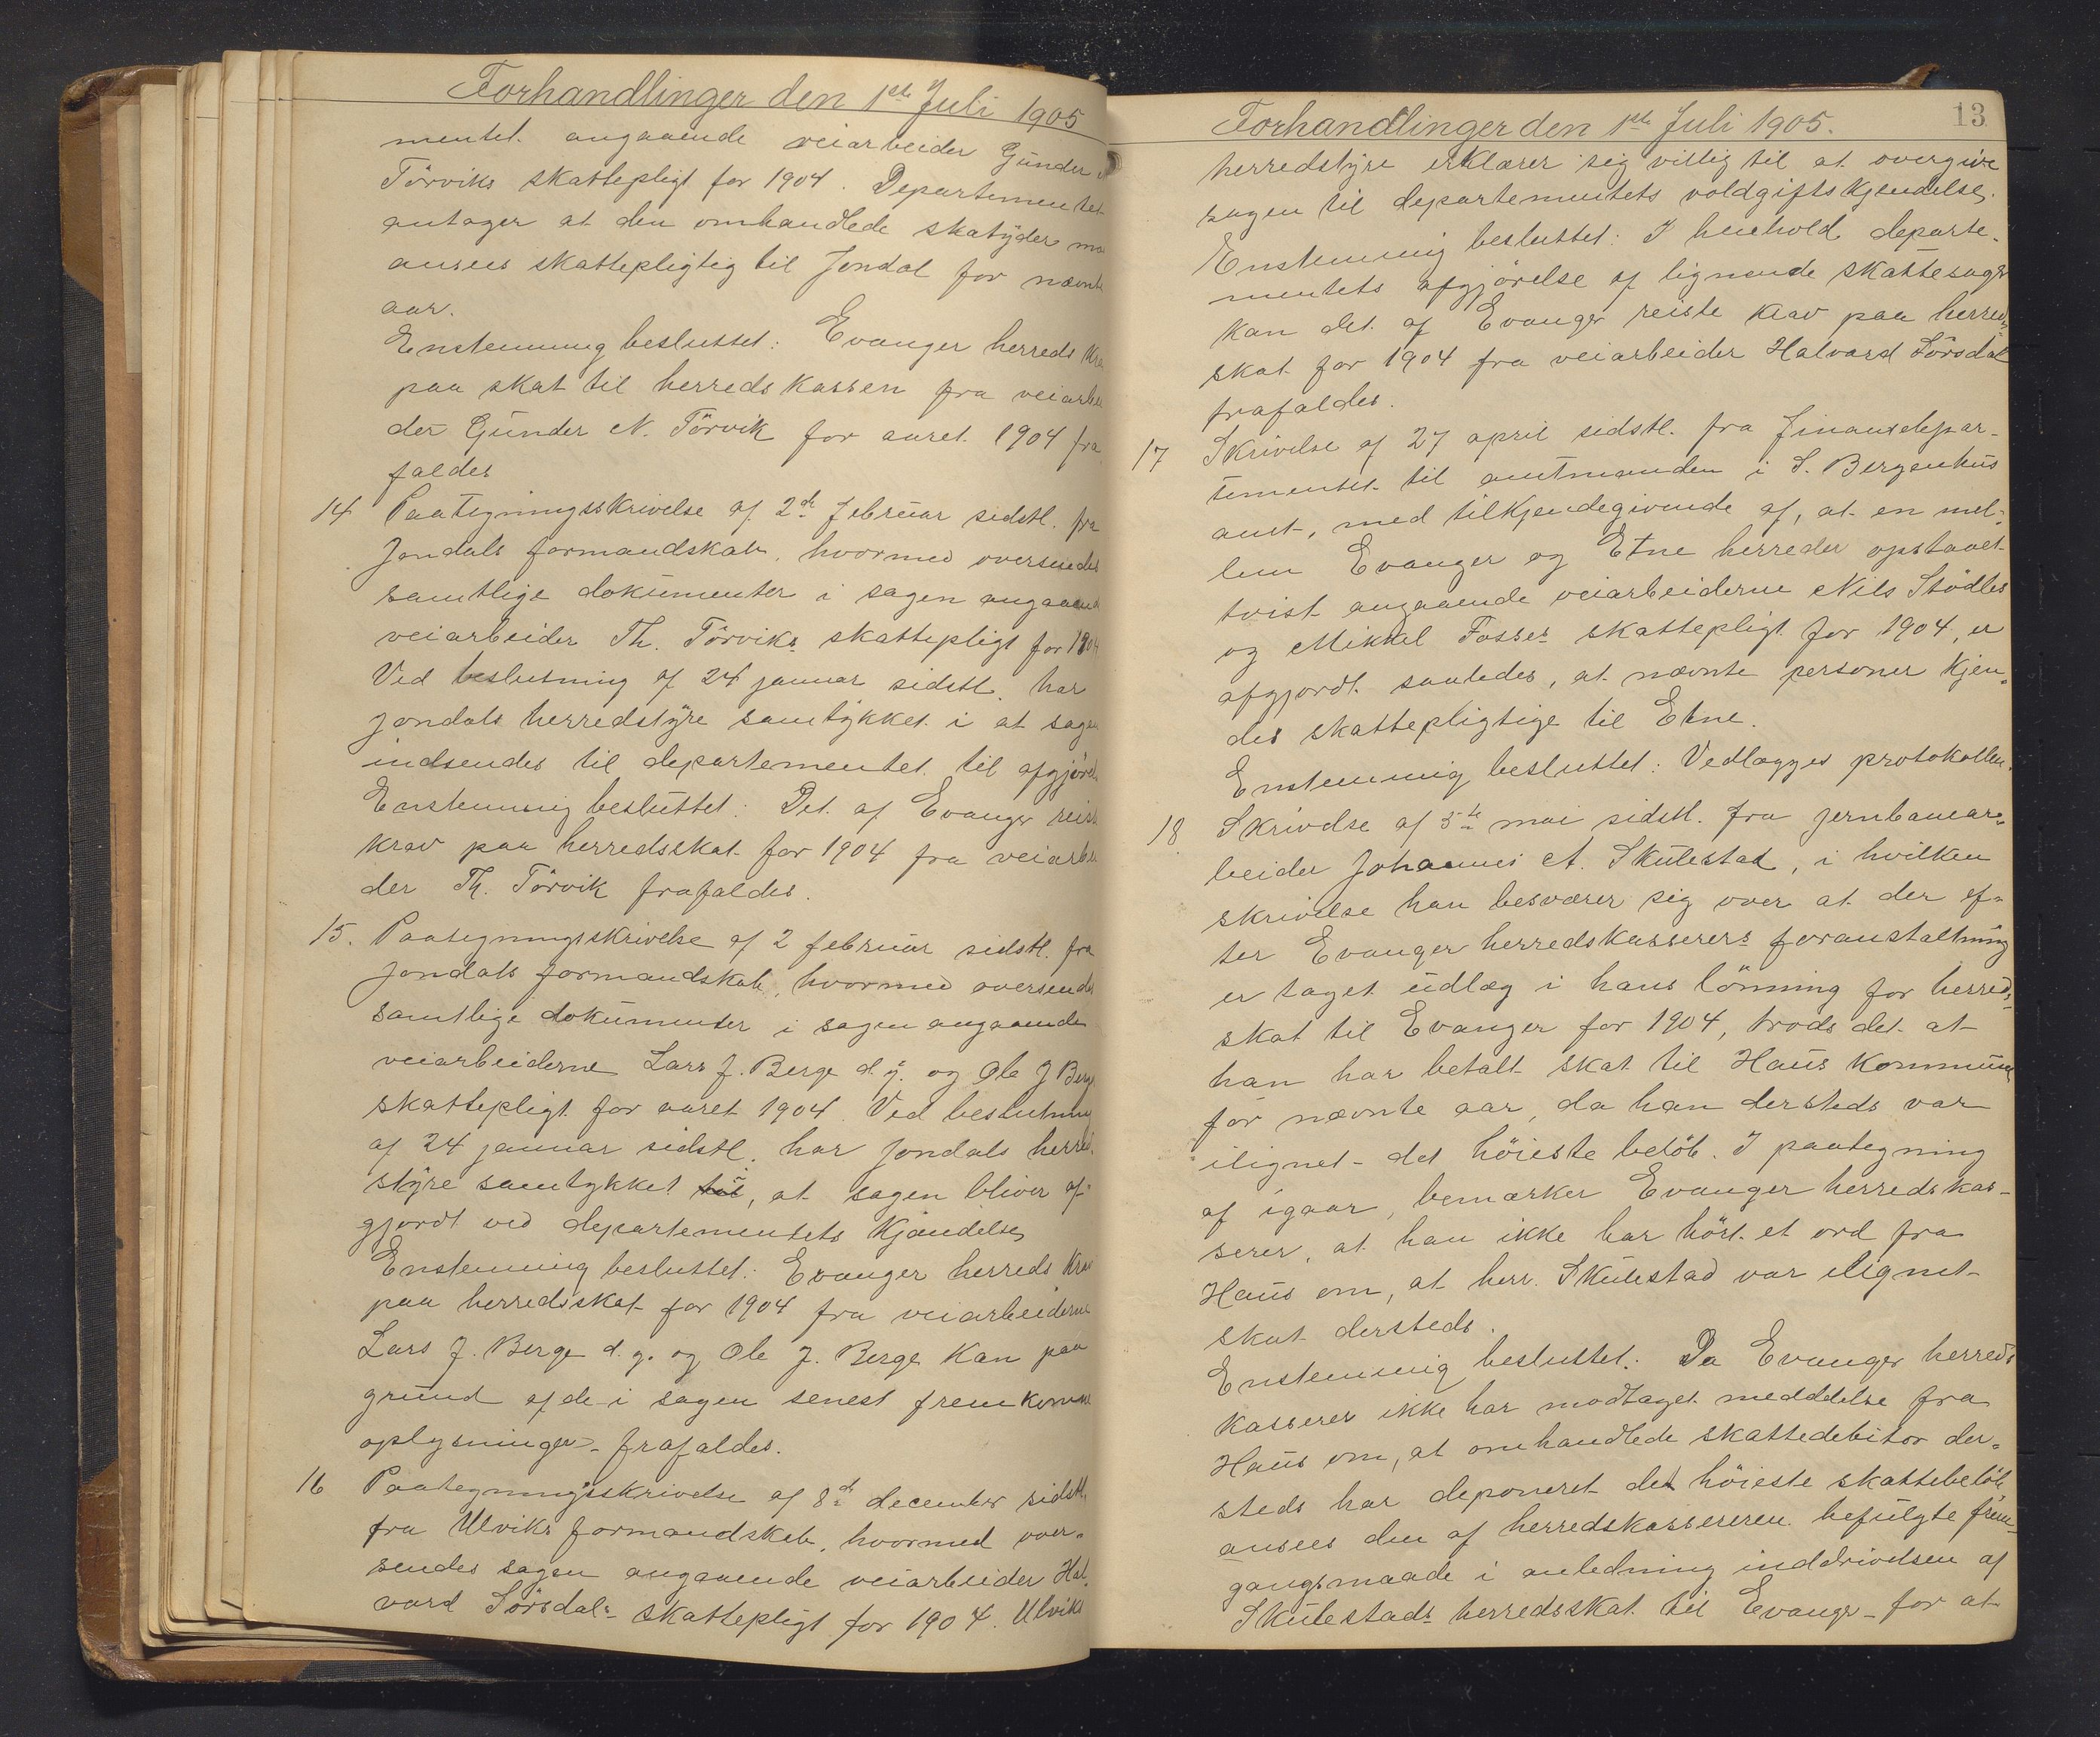 Forhandlinger den 1ste Juli 1905
mentet angaaende veiarbeider Gunder
Törviks skattepligt for 1904. Departementet
antager at den omhandlede skatyder maa
ansees skattepligtig til Jondal for nævnte
aar.
Enstemmig besluttet: Evanger herreds krav
paa skat til herredskassen fra veiarbei
der Gunder N. Törvik for aaret 1904 fra
faldes
14 Paategningsskrivelse af 2de februar sidstl. fra
Jondals formandskab, hvormed oversendes
samtlige dokumenter i sagen angaaende
veiarbeider Th. Törviks skattepligt for 1904
Ved beslutning af 24 januar sidstl. har
Jondals herredstyre samtykket i at sagen
indsendes til departementet til afgjörelse
Enstemmig besluttet: Det af Evanger reiste
krav paa herredsskat for 1904 fra veiarbei
der Th. Törvik frafaldes.
15. Paategningsskrivelse af 2 februar sidstl. fra
Jondals formandskab, hvormed oversendes
samtlige dokumenter i sagen angaaende
veiarbeiderne Lars J. Berge d.y. og Ole J Berge
skattepligt for aaret 1904. Ved beslutning
af 24 januar sidstl. har Jondals herred
styre samtykket til, at sagen bliver af-
gjordt ved departementets kjændelse,
Enstemmig besluttet: Evanger herreds krav
paa herredsskat for 1904 fra veiarbeiderne
Lars J. Berge d.y. og Ole J. Berge kan paa
grund af de i sagen senest fremkomne
oplysninger frafaldes.
16 Paategningsskrivelse af 8de december sidstl.
fra Ulviks formandskab, hvormed over-
sendes sagen angaaende veiarbeider Hal-
vard Sörsdals skattepligt for 1904. Ulviks
Forhandlinger den 1ste Juli 1905.
13
herredstyre erklærer sig villig til at overgive
sagen til departementets voldgiftskjendelse.
Enstemmig besluttet: I henhold departe-
mentets afgjörelse af lignende skattesager
kan det af Evanger reiste krav paa herreds-
skat for 1904 fra veiarbeider Halvard Sörsdal
frafaldes.
17 Skrivelse af 27 april sidstl. fra Finansdepar-
tementet til amtmanden i S. Bergenhus
amt, med tilkjendegivende af, at en mel-
lem Evanger og Etne herreder opstaaet
tvist angaaende veiarbeiderne Nils Stödles
og Mikkel Fosses skattepligt for 1904, er
afgjordt saaledes, at nævnte personer kjen-
des skattepligtige til Etne.
Enstemmig besluttet: Vedlægges protokollen.
18 Skrivelse af 5te mai sidstl. fra jernbanear-
beider Johannes A. Skulestad, i hvilken
skrivelse han besværer sig over at der ef-
ter Evanger herredskasserers foranstaltning
er taget udlæg i hans lönning for herreds-
skat til Evanger for 1904, trods det at
han har betalt skat til Haus kommune
for nævnte aar, da han dersteds var
ilignet det höieste belöb. I paategning
af igaar, bemærker Evanger herredskas-
serer, at han ikke har hört et ord fra
Haus om, at herr. Skulestad var ilignet
skat dersteds.
Enstemmig besluttet: Da Evanger herreds
kasserer ikke har modtaget meddelelse fra
Haus om, at omhandlede skattedebitor der-
steds har deponeret det höieste skattebelöb,
ansees den af herredskassereren befulgte frem-
gangsmaade i anledning inddrivelsen af
Skulestads herredsskat til Evanger for at